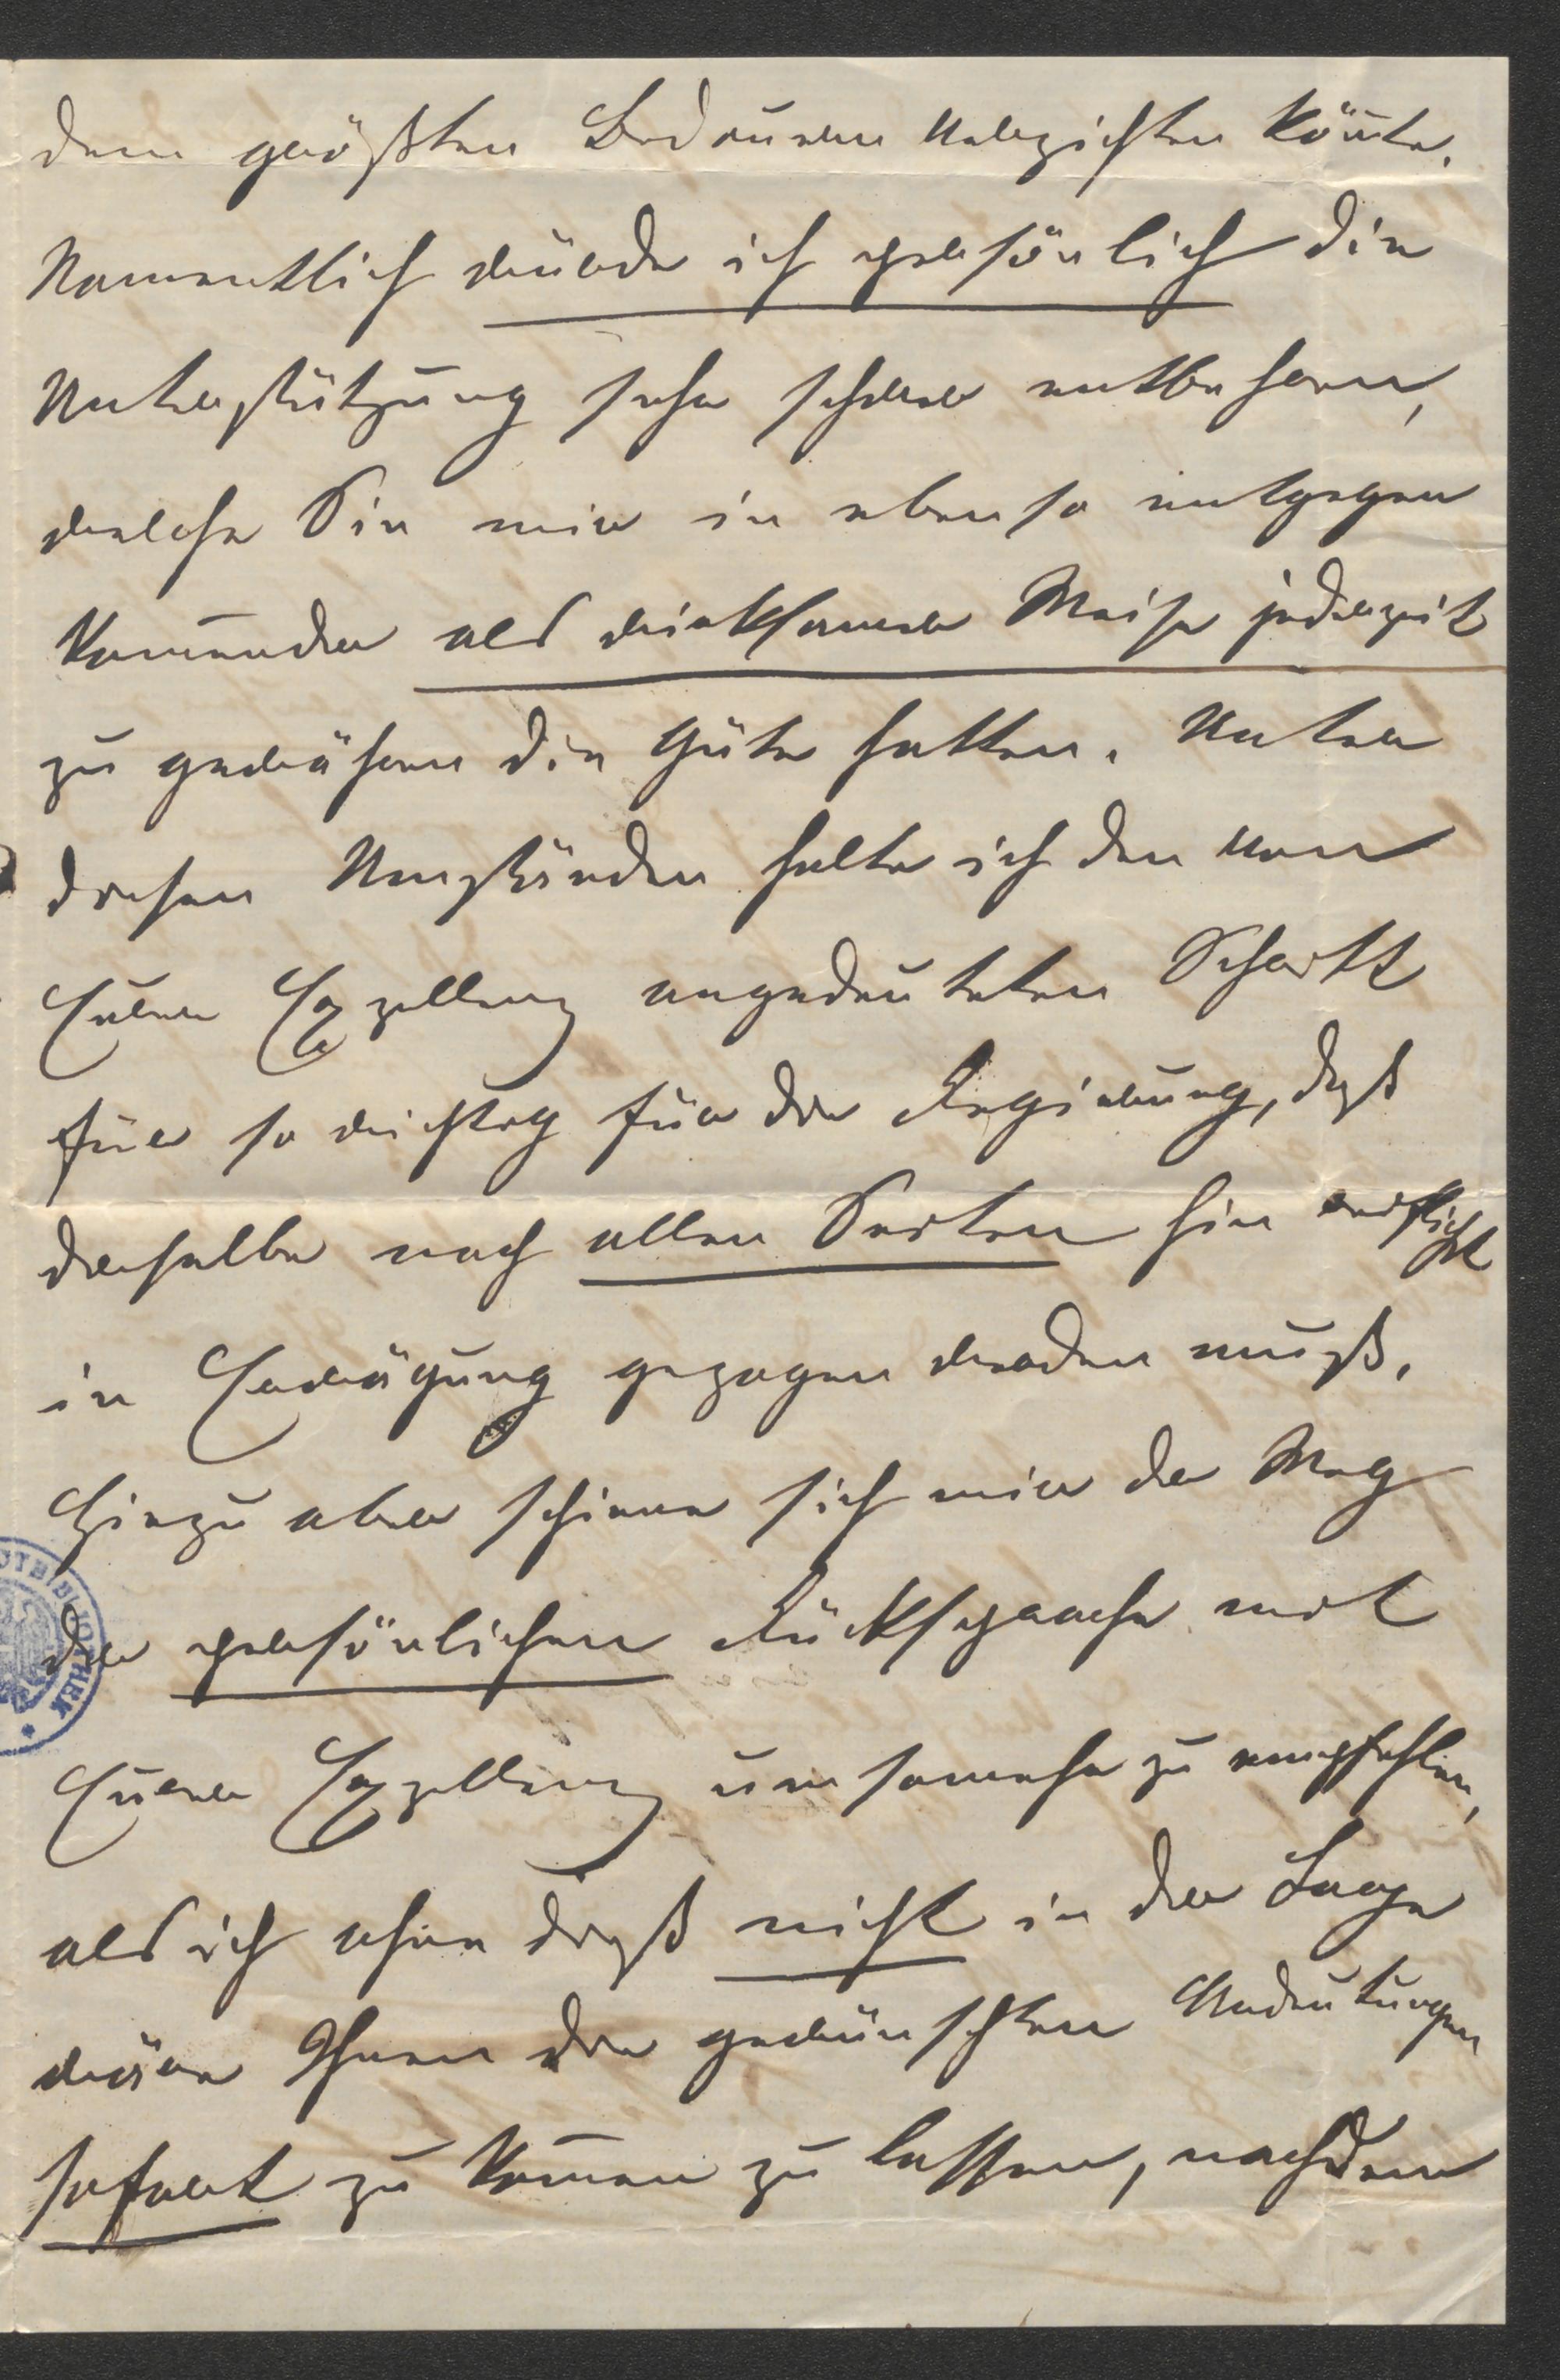 dem größten Bedauern verzichten könte.
Namentlich würde ich persönlich die
Unterstützung sehr schwer entbehren,
welche Sie mir in ebenso entgegen
komender als wirksamer Weise jederzeit
zu gewähren die Güte hatten. Unter
diesen Umständen halte ich den von
Euer Exzellenz angedeuteten Schritt
für so wichtig für die Regierung, daß
derselbe nach allen Seiten hin
in Erwägung gezogen werden muß.
Hiezu aber schiene sich mir der Weg
der persönlichen Rücksprache mit
Euerer Exzellenz umsomehr zu empfehlen,
als ich ohne dieß nicht in der Lage
wäre Ihnen die gewünschten Andeutungen
sofort zu komen zu lassen, nachdem